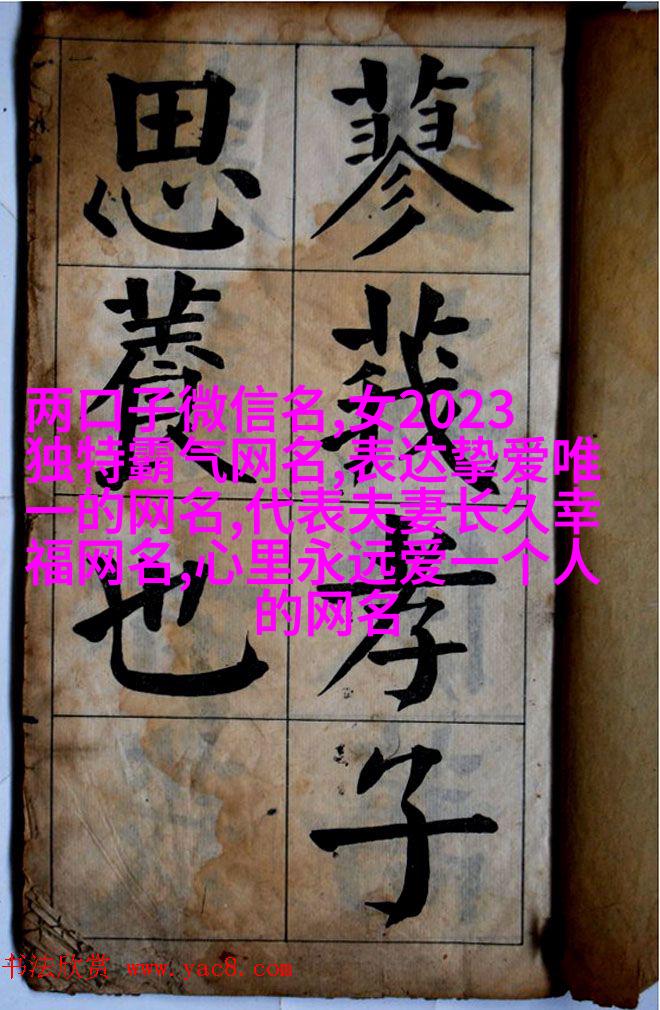 蓼莪孝子
思養也
两口子微信名,女2023
独特霸气网名,表达挚爱唯
一的网名,代表夫妻长久幸
福网名,心里永远爱一个人
的网名
书法欣赏 www.yac8.com